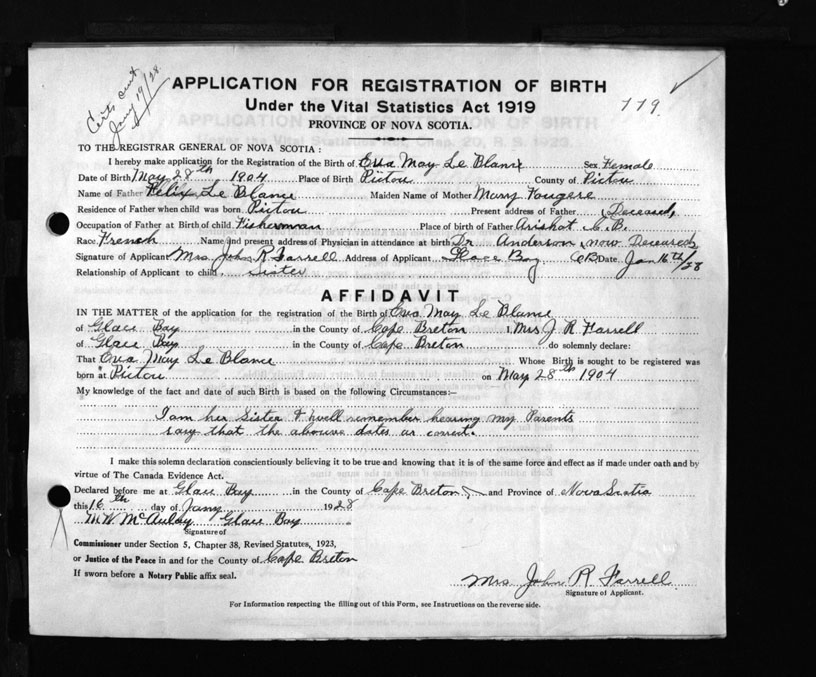 Certs sent
Jany 19/28.
119.
APPLICATION FOR REGISTRATION OF BIRTH
Under the Vital Statistics Act 1919
PROVINCE OF NOVA SCOTIA.
TO THE REGISTRAR GENERAL OF NOVA SCOTIA :
I hereby make application for the Registration of the Birth of Eva May Le Blanc Sex Female
Date of Birth May 28th 1904 Place of Birth Pictou County of Pictou
Name of Father Felix Le Blanc Maiden Name of Mother Mary Fougere
Residence of Father when child was born Pictou Present address of Father (Deceased)
Occupation of Father at Birth of child Fisherman Place of birth of Father Arishat C.B.
Race French Name and present address of Physician in attendance at birth Dr. Anderson (now Deceased)
Signature of Applicant Mrs John R Farrell Address of Applicant Glace Bay CB Date Jan 16th/28
Relationship of Applicant to child sister
AFFIDAVIT
IN THE MATTER of the application for the registration of the Birth of Eva May Le Blanc
of Glace Bay in the County of Cape Breton I, Mrs J. R Farrell
of Glace Bay in the County of Cape Breton do solemnly declare:
That Eva May Le Blanc Whose Birth is sought to be registered was
born at Pictou on May 28th 1904
My knowledge of the fact and date of such Birth is based on the following Circumstances:—
I am her Sister & well remember hearing my Parents
say that the abouve dates ar correct.
I make this solemn declaration conscientiously believing it to be true and knowing that it is of the same force and effect as if made under oath and by
virtue of The Canada Evidence Act.
Declared before me at Glace Bay in the County of Cape Breton, and Province of Nova Scotia
this 16th day of Jany 1928
M. W. McAulay Glace Bay
Signature of
Commissioner under Section 5, Chapter 38, Revised Statutes, 1923,
or Justice of the Peace in and for the County of Cape Breton
If sworn before a Notary Public affix seal.
Mrs John R. Farrell
Signature of Applicant.
For Information respecting the filling out of this Form, see Instructions on the reverse side.